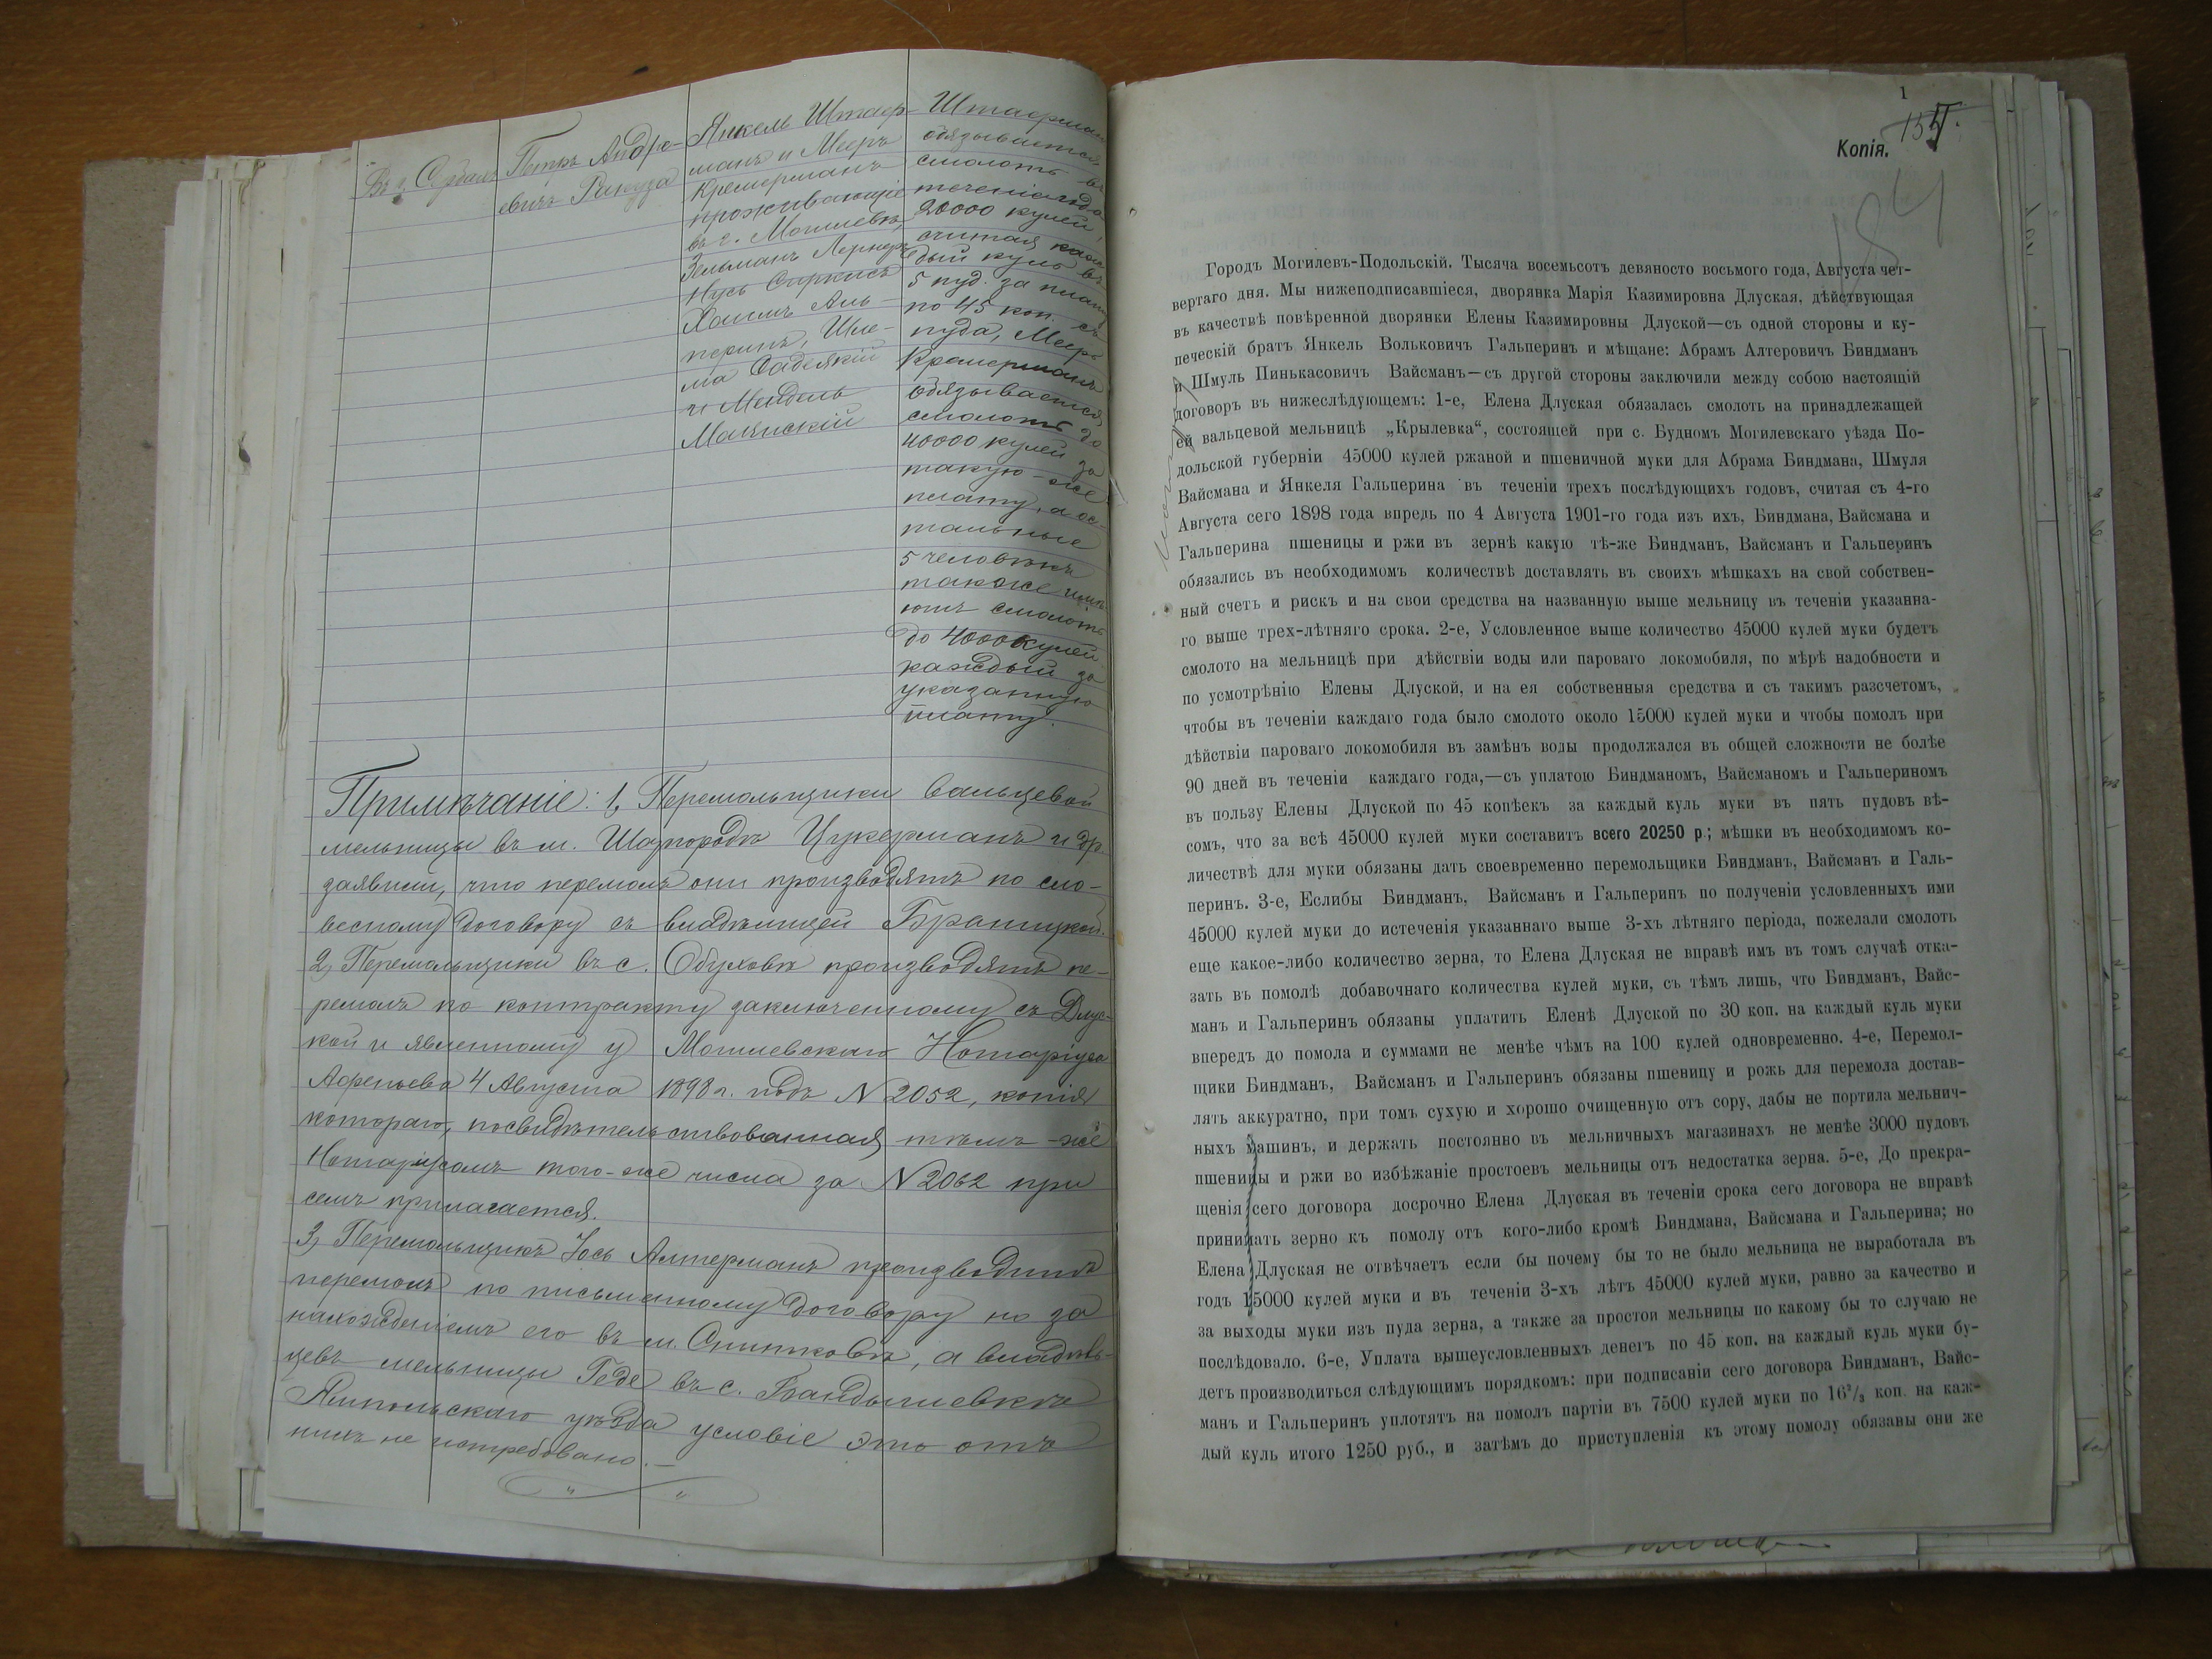 Въ с. Сердал
Петръ Андре-
евичъ Ракуза
Янкель Штаер-
манъ и Мееръ
Кремерманъ
проживающіе
въ г. Могилевѣ,
Зельманъ Лернеръ
Нусь Сиркисъ
Хаимъ Аль-
перинъ, Шле-
ма
и Мендель
Штаерманъ
обязывается
смолоть въ
теченіи года
20000 кулей,
считая каж-
дый куль въ
5 пуд. за плату
по 45 коп. съ
пуда, Мееръ
Кремерманъ
обязывается
смолоть до
40000 кулей за
такую-же
плату, а ос-
тальные
5 человѣкъ
также имѣ-
ютъ смолоть
до 4000 кулей
каждый за
указанную
плату.
Примѣчаніе: 1, Перемольщики вальцевой
мельницы въ м. Шаргородѣ Цукерманъ и др.
заявили, что перемолъ они производятъ по сло-
весному договору съ владѣлицей Браницкой.
2, Перемольщики въ с. Обуховѣ производятъ пе-
ремолъ по контракту заключенному съ Длус-
кой и явленному у Могилевскаго Нотаріуса
4 Августа 1898 г. подъ N 2052, копія
котораго, посвидѣтельствованная тѣмъ-же
Нотаріусомъ того-же числа за N 2062 при
семъ прилагается.
3, Перемольщикъ Іось Алтерманъ производитъ
перемолъ по письменному договору но за
нахожденіемъ его въ м. Снитковѣ, а владѣль-
цевъ мельницы Геде въ с. Бандышевкѣ
Ямпольскаго уѣзда условіе это отъ
нихъ не истребовано.—
1
Копія.
184
Городъ Могилевъ-Подольскій. Тысяча восемьсотъ девяносто восьмого года, Августа чет-
вертаго дня. Мы нижеподписавшіеся, дворянка Марія Казимировна Длуская, дѣйствующая
въ качествѣ повѣренной дворянки Елены Казимировны Длуской—съ одной стороны и ку-
печескій братъ Янкель Вольковичъ Гальперинъ и мѣщане: Абрамъ Алтеровичъ Биндманъ
и Шмуль Пинькасовичъ Вайсманъ—съ другой стороны заключили между собою настоящій
договоръ въ нижеслѣдующемъ: 1-е, Елена Длуская обязалась смолоть на принадлежащей
ей вальцевой мельницѣ „Крылевка“, состоящей при с. Будномъ Могилевскаго уѣзда По-
дольской губерніи 45000 кулей ржаной и пшеничной муки для Абрама Биндмана, Шмуля
Вайсмана и Янкеля Гальперина въ теченіи трехъ послѣдующихъ годовъ, считая съ 4-го
Августа сего 1898 года впредь по 4 Августа 1901-го года изъ ихъ, Биндмана, Вайсмана и
Гальперина пшеницы и ржи въ зернѣ какую тѣ-же Биндманъ, Вайсманъ и Гальперинъ
обязались въ необходимомъ количествѣ доставлять въ своихъ мѣшкахъ на свой собствен-
ный счетъ и рискъ и на свои средства на названную выше мельницу въ теченіи указанна-
го выше трех-лѣтняго срока. 2-е, Условленное выше количество 45000 кулей муки будетъ
смолото на мельницѣ при дѣйствіи воды или пароваго локомобиля, по мѣрѣ надобности и
по усмотрѣнію Елены Длуской, и на ея собственныя средства и съ такимъ разсчетомъ,
чтобы въ теченіи каждаго года было смолото около 15000 кулей муки и чтобы помолъ при
дѣйствіи пароваго локомобиля въ замѣнъ воды продолжался въ общей сложности не болѣе
90 дней въ теченіи каждаго года,—съ уплатою Биндманомъ, Вайсманомъ и Гальпериномъ
въ пользу Елены Длуской по 45 копѣекъ за каждый куль муки въ пять пудовъ вѣ-
сомъ, что за всѣ 45000 кулей муки составитъ всего 20250 р.; мѣшки въ необходимомъ ко-
личествѣ для муки обязаны дать своевременно перемольщики Биндманъ, Вайсманъ и Галь-
перинъ. 3-е, Еслибы Биндманъ, Вайсманъ и Гальперинъ по полученіи условленныхъ ими
45000 кулей муки до истеченія указаннаго выше 3-хъ лѣтняго періода, пожелали смолоть
еще какое-либо количество зерна, то Елена Длуская не вправѣ имъ въ томъ случаѣ отка-
зать въ помолѣ добавочнаго количества кулей муки, съ тѣмъ лишь, что Биндманъ, Вайс-
манъ и Гальперинъ обязаны уплатить Еленѣ Длуской по 30 коп. на каждый куль муки
впередъ до помола и суммами не менѣе чѣмъ на 100 кулей одновременно. 4-е, Перемол-
щики Биндманъ, Вайсманъ и Гальперинъ обязаны пшеницу и рожь для перемола достав-
лять аккуратно, при томъ сухую и хорошо очищенную отъ сору, дабы не портила мельнич-
ныхъ машинъ, и держать постоянно въ мельничныхъ магазинахъ не менѣе 3000 пудовъ
пшеницы и ржи во избѣжаніе простоевъ мельницы отъ недостатка зерна. 5-е, До прекра-
щенія сего договора досрочно Елена Длуская въ теченіи срока сего договора не вправѣ
принимать зерно къ помолу отъ кого-либо кромѣ Биндмана, Вайсмана и Гальперина; но
Елена Длуская не отвѣчаетъ если бы почему бы то не было мельница не выработала въ
годъ 15000 кулей муки и въ теченіи 3-хъ лѣтъ 45000 кулей муки, равно за качество и
за выходы муки изъ пуда зерна, а также за простои мельницы по какому бы то случаю не
послѣдовало. 6-е, Уплата вышеусловленныхъ денегъ по 45 коп. на каждый куль муки бу-
детъ производиться слѣдующимъ порядкомъ: при подписаніи сего договора Биндманъ, Вайс-
манъ и Гальперинъ уплотятъ на помолъ партіи въ 7500 кулей муки по 16²/₃ коп. на каж-
дый куль итого 1250 руб., и затѣмъ до приступленія къ этому помолу обязаны они же